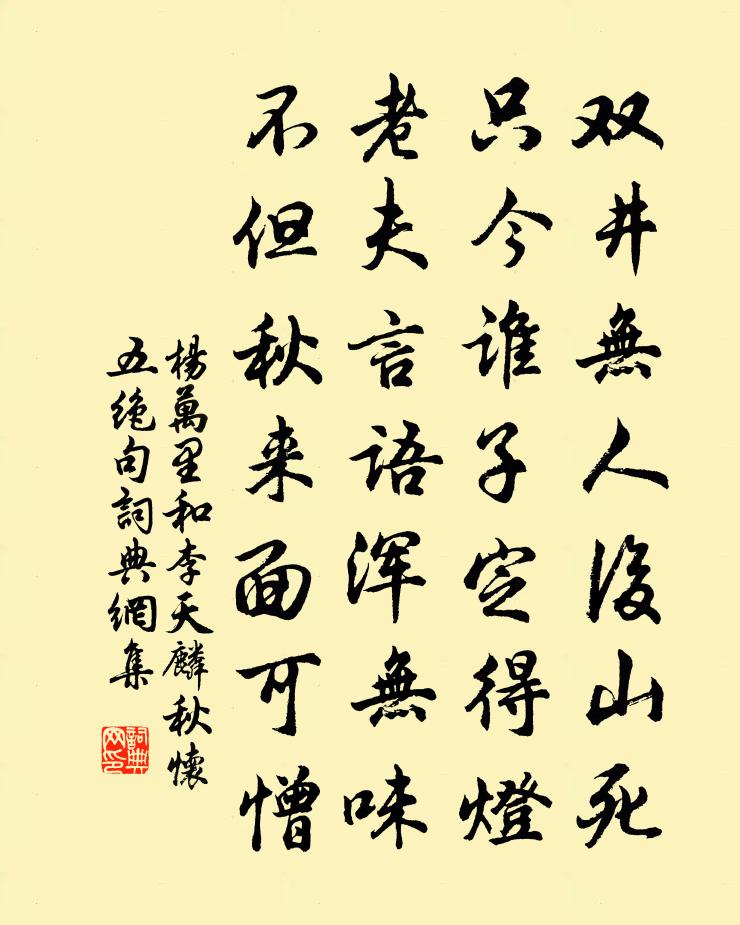 双井無人後山死
只今谁子定得燈
老夫言语浑無味
不但秋来面可憎
楊萬里和李天麟秋懷
五绝句詞典網集
詞典网印